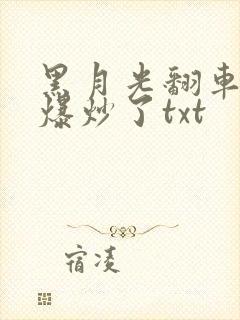 黑月光翻車
爆炒了txt
宿凌